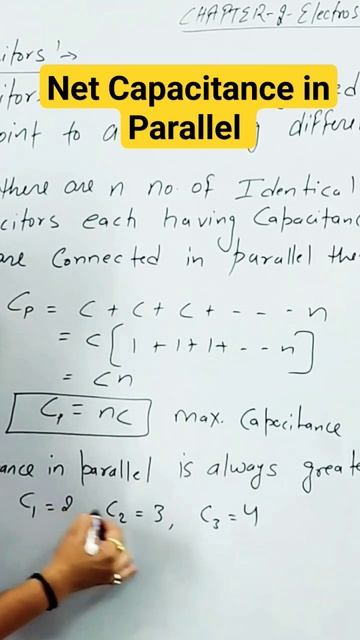 CHAPTER-2-Electros
itors :→
Net Capacitance in
Parallel
itor
ed
oint to a
differe
there are n no. of Identical
citors each having Capacitanc
are Connected in parallel the
Cp = C + C + C + - - - - n
= C [1 + 1 + 1 + - - n]
= Cn
Cp = nC max. Capacitance
ance in parallel is always greate
C1 = 2 C2 = 3, C3 = 4